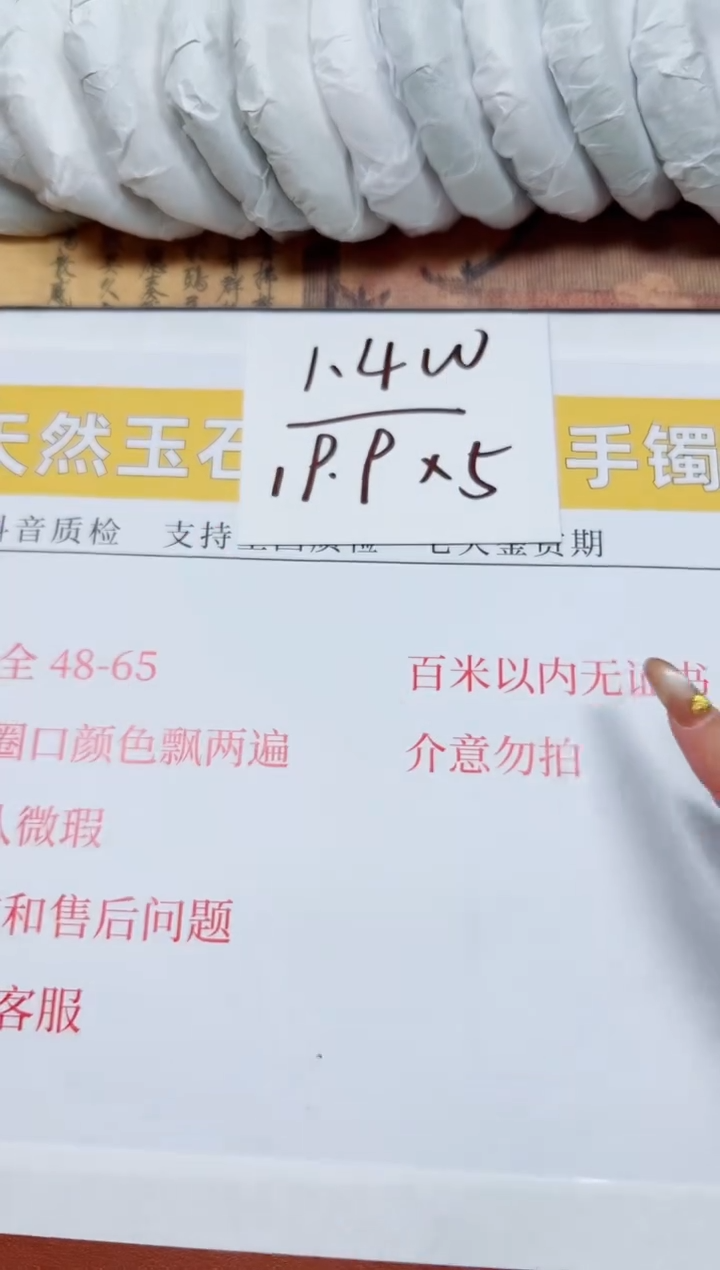 1.4W
19.9×5
天然玉石 手镯
抖音质检 支持全国质检 七天鉴赏期
全 48-65
圈口颜色飘两遍
微瑕
和售后问题
客服
百米以内无证书
介意勿拍